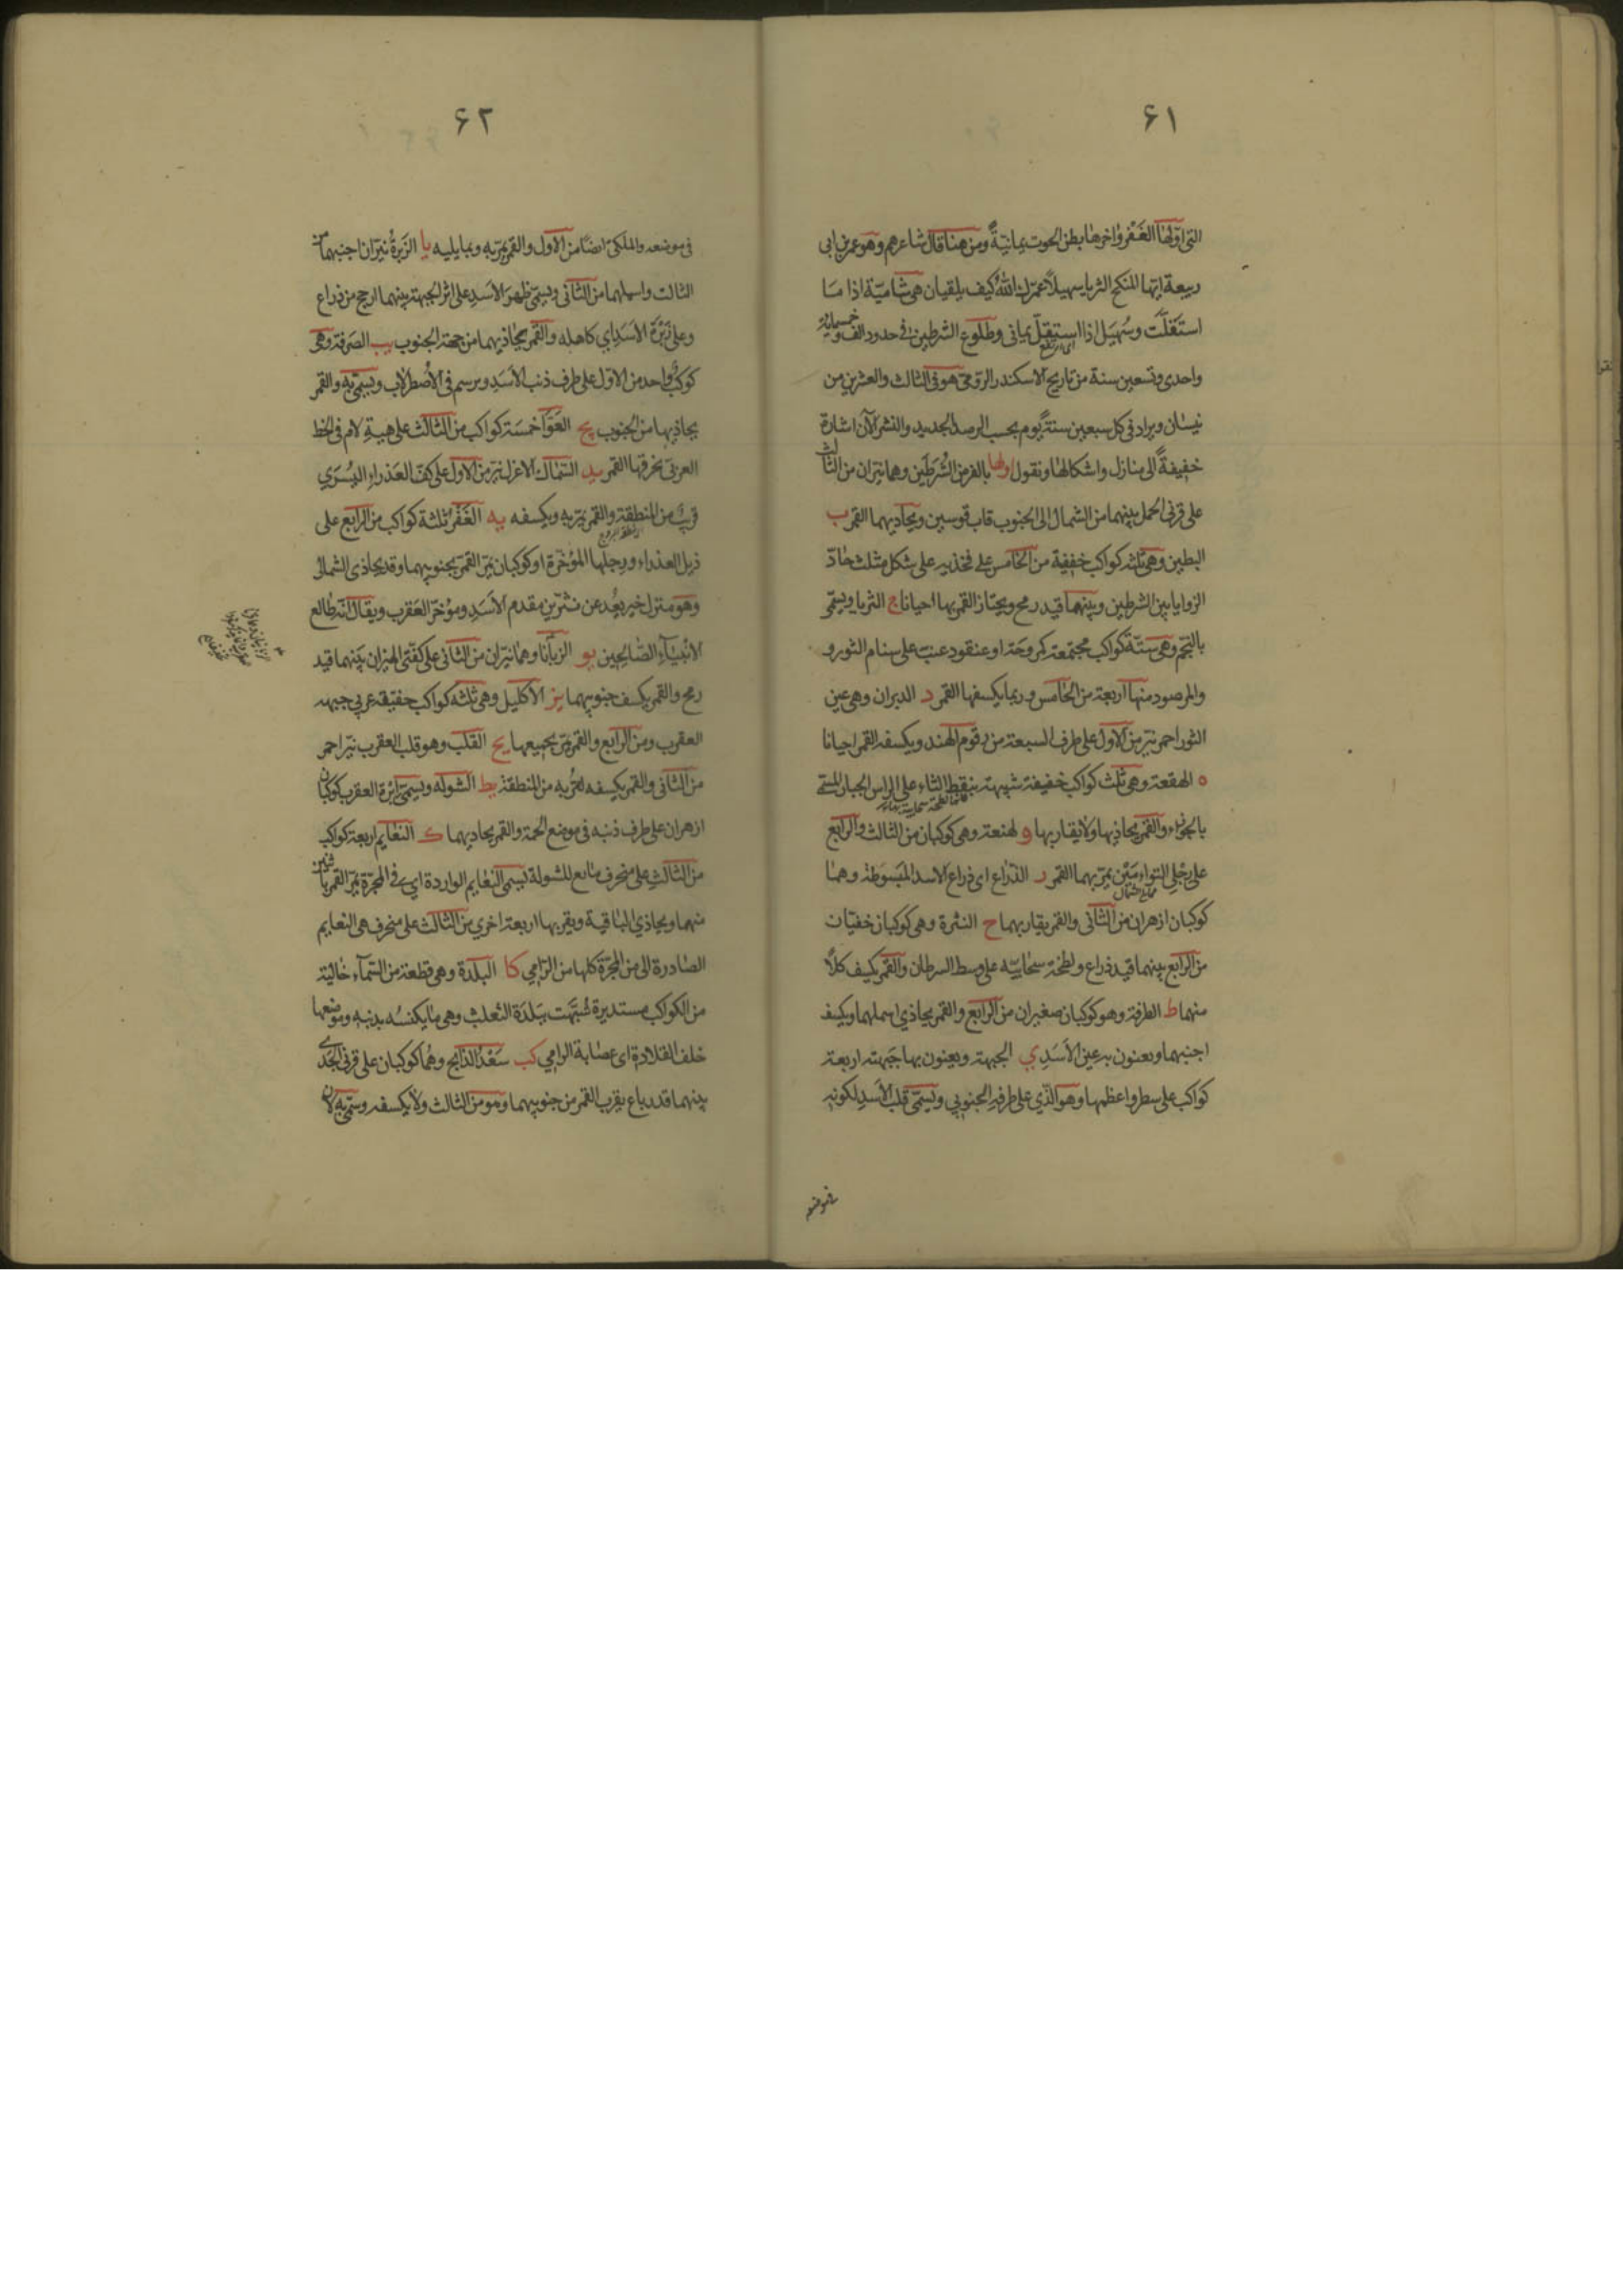 ۶۱
التى اولها الغَفْر واخرها بطن الحوت يمانيّةً ومن هنا قال شاعرهم وهو عمر بن ابى
ربيعة ايّها المنكح الثريا سهيلاً عمّرك اللهُ كيف يلقيان هى شاميّة اذا مَا
استقلّت وسُهَيل اذا استقلّ يمانى وطلوع الشرطين فى حدود الف وخمسمائة
اى ارتفع
واحدى وتسعين سنة من تاريخ الاسكندر الرومى هو فى الثالث والعشرين من
نيسان ويزاد فى كل سبعين سنةً يوم بحسب الرصد الجديد والنشر الآن اشارة
خفيفةً الى منازل واشكالها ونقول اولها بالفرمن الشَرَطَين وهما نيّران من الثالث
على قرنى الحمل بينهما من الشمال الى الجنوب قاب قوسين ويحاذيهما القمر ب
البطين وهى ثلثه كواكب خفيفة من الخامس على فخذيه على شكل مثلث حادّ
الزوايا بين الشرطين وبينهما قيد رمح ويجتاز القمر بها احيانا ج الثريا ويسمّى
بالنجم وهى ستّة كواكب مجتمعة كمروحَة او عنقود عنب على سنام الثور و
والمرصود منها اربعة من الخامس وربما يكسفها القمر د الدبران وهى عين
الثور احمر نيّر من الاول على طرف السبعة من رقوم الهند ويكسفه القمر احيانا
ه الهقعة وهى ثلث كواكب خفيفة شبيهة بنقط الثاء على الراس الجبار المسمّى
بالجوزاء والقمر يحاذيها ولا يقاربها و لهنعة وهى كوكبان من الثالث والرابع
على رجلى التواءمَيْن يمرّ بهما القمر ر الذّراع اى ذراع الاسد المَبسَوطة وهمَا
كوكبان ازهران من الثانى والقمر يقاربهما ح النثرة وهى كوكبان خفيّان
من الرابع بينهما قيد ذراع ولطخة سحابيّه على وسط السرطان والقمر يكسف كلاًّ
منهما ط الطرفة وهو كوكبان صغيران من الرابع والقمر يحاذى اسملهما ويكسف
اجنبهما ويعنون به عين الأسَدِ ي الجبهة ويعنون بها جَبهته اربعة
كواكب على سطر واعظمها وهو الّذي على طرفهِ الجنوبي ويسمّى قلب الأسَدِ لكونه
فى موضعه
۶۲
فى موضعه والملكى ايضًا من الأول والقمر يمرّ به وبما يليه يا الزُبرةُ نيّران اجنبهما من
الثالث واسملهما من الثانى ويسمّى ظهر الأسَدِ على اثر الجبهة بينهما ارجح من ذراع
وعلى زُبْرَة الأسَدِ اي كاهله والقمر يحاذيهما من جهة الجنوب يب الصَرفة وهى
كوكبٌ واحد من الاول على طرف ذنب الأسَدِ ويرسم فى الأصطرلاب ويسمّى به والقمر
يحاذيها من الجنوب يج العَوّا خمسَة كواكب من الثالث على هيئةِ لام فى الخط
العربىّ يخرقها القمر يد السّماك الأعزل نيّر من الأول على كفّ العَذراء اليُسرَي
قريبٌ من المنطقة والقمر يمرّ به ويكسفه يه الغَفْرُ ثلثة كواكب من الرابع على
ذيل العذراء ورجلها المؤخّرة او كوكبان يمرّ القمر بجنوبيهما وقد يحاذى الشمالى
وهو منزل خير بعُد عن شرّين مقدم الأسَدِ ومؤخر العَقرب ويقال انّه طالع
الأنبيآء الصّالحِين يو الزبانَا وهما نيّران من الثانى على كفّتى الميزان بينهما قيد
رمح والقمر يكسف جنوبيهما يز الأكليل وهى ثلثه كواكب جبهه
العقرب ومن الرابع والقمر يمرّ بجميعها يح القلب وهو قلب العقرب نيّر احمر
من الثانى والقمر يكسفه لقربه من المنطقة يط الشوله ويسمّى ابرة العقرب كوكبان
ازهران على طرف ذنبه فى موضع الحمة والقمر يحاذيهما ك النعايم اربعة كواكب
من الثالث على منحرف تابع للشولة تسمّى النعايم الواردة اي فى المجرّة يمرّ القمر باثنين
منهما ويحاذي الباقية ويقربها اربعة اخرى من الثالث على منحرف هى النعايم
الصّادرة الى من المجرّة كلها من الرّامي كا البلدة وهى قطعة من السّمآء خالية
من الكواكب مستديرة شُبّهَت ببَلدَة الثعلب وهى ما يكنسُه بذنبه وموضعها
خلف القلادة اى عصَابة الرامي كب سَعْدُ الذّابح وهُما كوكبان على قرنى الجَدى
بينهما قدر باع يقرب القمر من جنوبيهما وهو من الثالث ولا يكسفه وسمّى به لأن